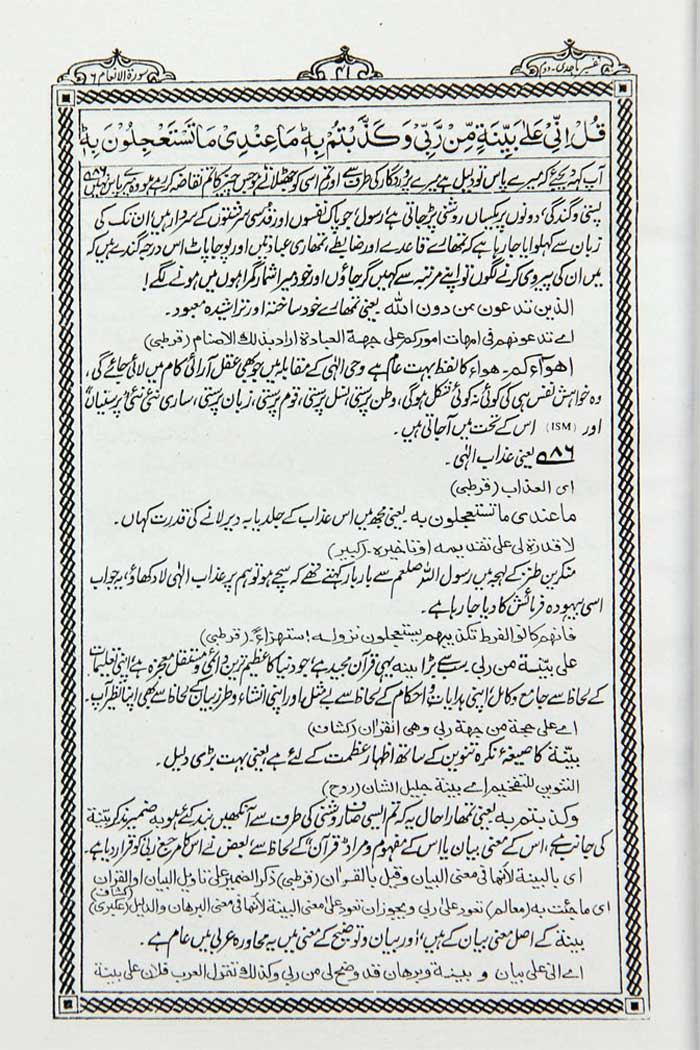 تفسیر ماجدی ۔ دوم
سورۃ الانعام ۶
قُلْ اِنِّیْ عَلٰی بَیِّنَةٍ مِّنْ رَّبِّیْ وَ کَذَّبْتُمْ بِهٖ ؕ مَا عِنْدِیْ مَا تَسْتَعْجِلُوْنَ بِهٖ ؕ
آپ کہہ دیجئے کہ میرے پاس تو دلیل ہے میرے پروردگار کی طرف سے اور تم اسی کو جھٹلاتے ہو جس چیز کا تم تقاضہ کر رہے ہو وہ میرے پاس نہیں ۸۶
پستی و گندگی، دونوں پر یکساں روشنی پڑ جاتی ہے، رسول، جو پاک نفسوں اور قدسی سرشتوں کے سردار ہیں، ان تک کی
زبان سے کہلوایا جا رہا ہے کہ تمھارے قاعدے اور ضابطے، تمھاری عبادتیں اور پوجا پاٹ اس درجہ گندے ہیں کہ
میں ان کی پیروی کرنے لگوں تو اپنے مرتبہ سے کہیں گر جاؤں اور خود میرا شمار گمراہوں میں ہونے لگے!
الذین تدعون من دون اللہ یعنی تمھارے خود ساختہ اور تراشیدہ معبود۔
اے تدعونهم فی امهات امورکم علی جهة العبادة اراد بذلك الاصنام (قرطبی)
اهوآءکم۔ هواء کا لفظ بہت عام ہے وحی الٰہی کے مقابلہ میں جو بھی عقل آرائی کام میں لائی جائے گی،
وہ خواہش نفس ہی کی کوئی نہ کوئی شکل ہوگی، وطن پرستی، نسل پرستی، قوم پرستی، زبان پرستی، ساری نئی نئی "پرستیاں"
اور (ISM) اس کے تحت میں آجاتی ہیں۔
۸۶ یعنی عذاب الٰہی۔
ای العذاب (قرطبی)
ما عندی ما تستعجلون به یعنی مجھ میں اس عذاب کے جلد یا بہ دیر لانے کی قدرت کہاں۔
لا قدرة لی علی تقدیمه او تاخیره۔ (کبیر)
منکرین طنز کے لہجہ میں رسول اللہ صلعم سے بار بار کہتے تھے کہ سچے ہو تو ہم پر عذاب الٰہی لا دکھاؤ، یہ جواب
اسی بیہودہ فرمائش کا دیا جا رہا ہے۔
فانهم کانوا لفرط تکذیبهم یستعجلون نزوله استهزاءً (قرطبی)
علی بیّنة من ربی سب سے بڑا بینہ یہی قرآن مجید ہے، جو دنیا کا عظیم ترین دائمی و مستقل معجزہ ہے، اپنی تعلیمات
کے لحاظ سے جامع و کامل، اپنی ہدایات و احکام کے لحاظ سے بے مثل اور اپنی انشاء و طرز بیان کے لحاظ سے بھی اپنا نظیر آپ۔
اے علی حجة من جهة ربی وهی القران (کشاف)
بیّنة کا صیغۂ نکرہ تنوین کے ساتھ اظہار عظمت کے لئے ہے یعنی بہت بڑی دلیل۔
التنوین للتفخیم اے بینة جلیل الشان (روح)
وکذبتم به یعنی تمھارا حال یہ کہ تم ایسی صاف روشنی کی طرف سے آنکھیں بند کئے ہو به ضمیر مذکر بیّنة
کی جانب ہے، اس کے معنی بیان یا اس کے مفہوم و مراد "قرآن" کے لحاظ سے بعض نے اس کا مرجع ربی کو قرار دیا ہے۔
ای بالبینة لأنها فی معنی البیان وقیل بالقران (قرطبی) ذکر الضمیر علی تاویل البیان او القران (کشاف)
ای ما جئت به (معالم) تعود علی ربی ویجوز ان تعود علی معنی البینة لأنها فی معنی البرهان والدلیل (عکبری)
بینة کے اصل معنی بیان کے ہیں، اور بیان و توضیح کے معنی میں یہ محاورہ عربی میں عام ہے۔
اے انی علی بیان و بینة وبرهان قد وضح لی من ربی وکذلك تقول العرب فلان علی بینة